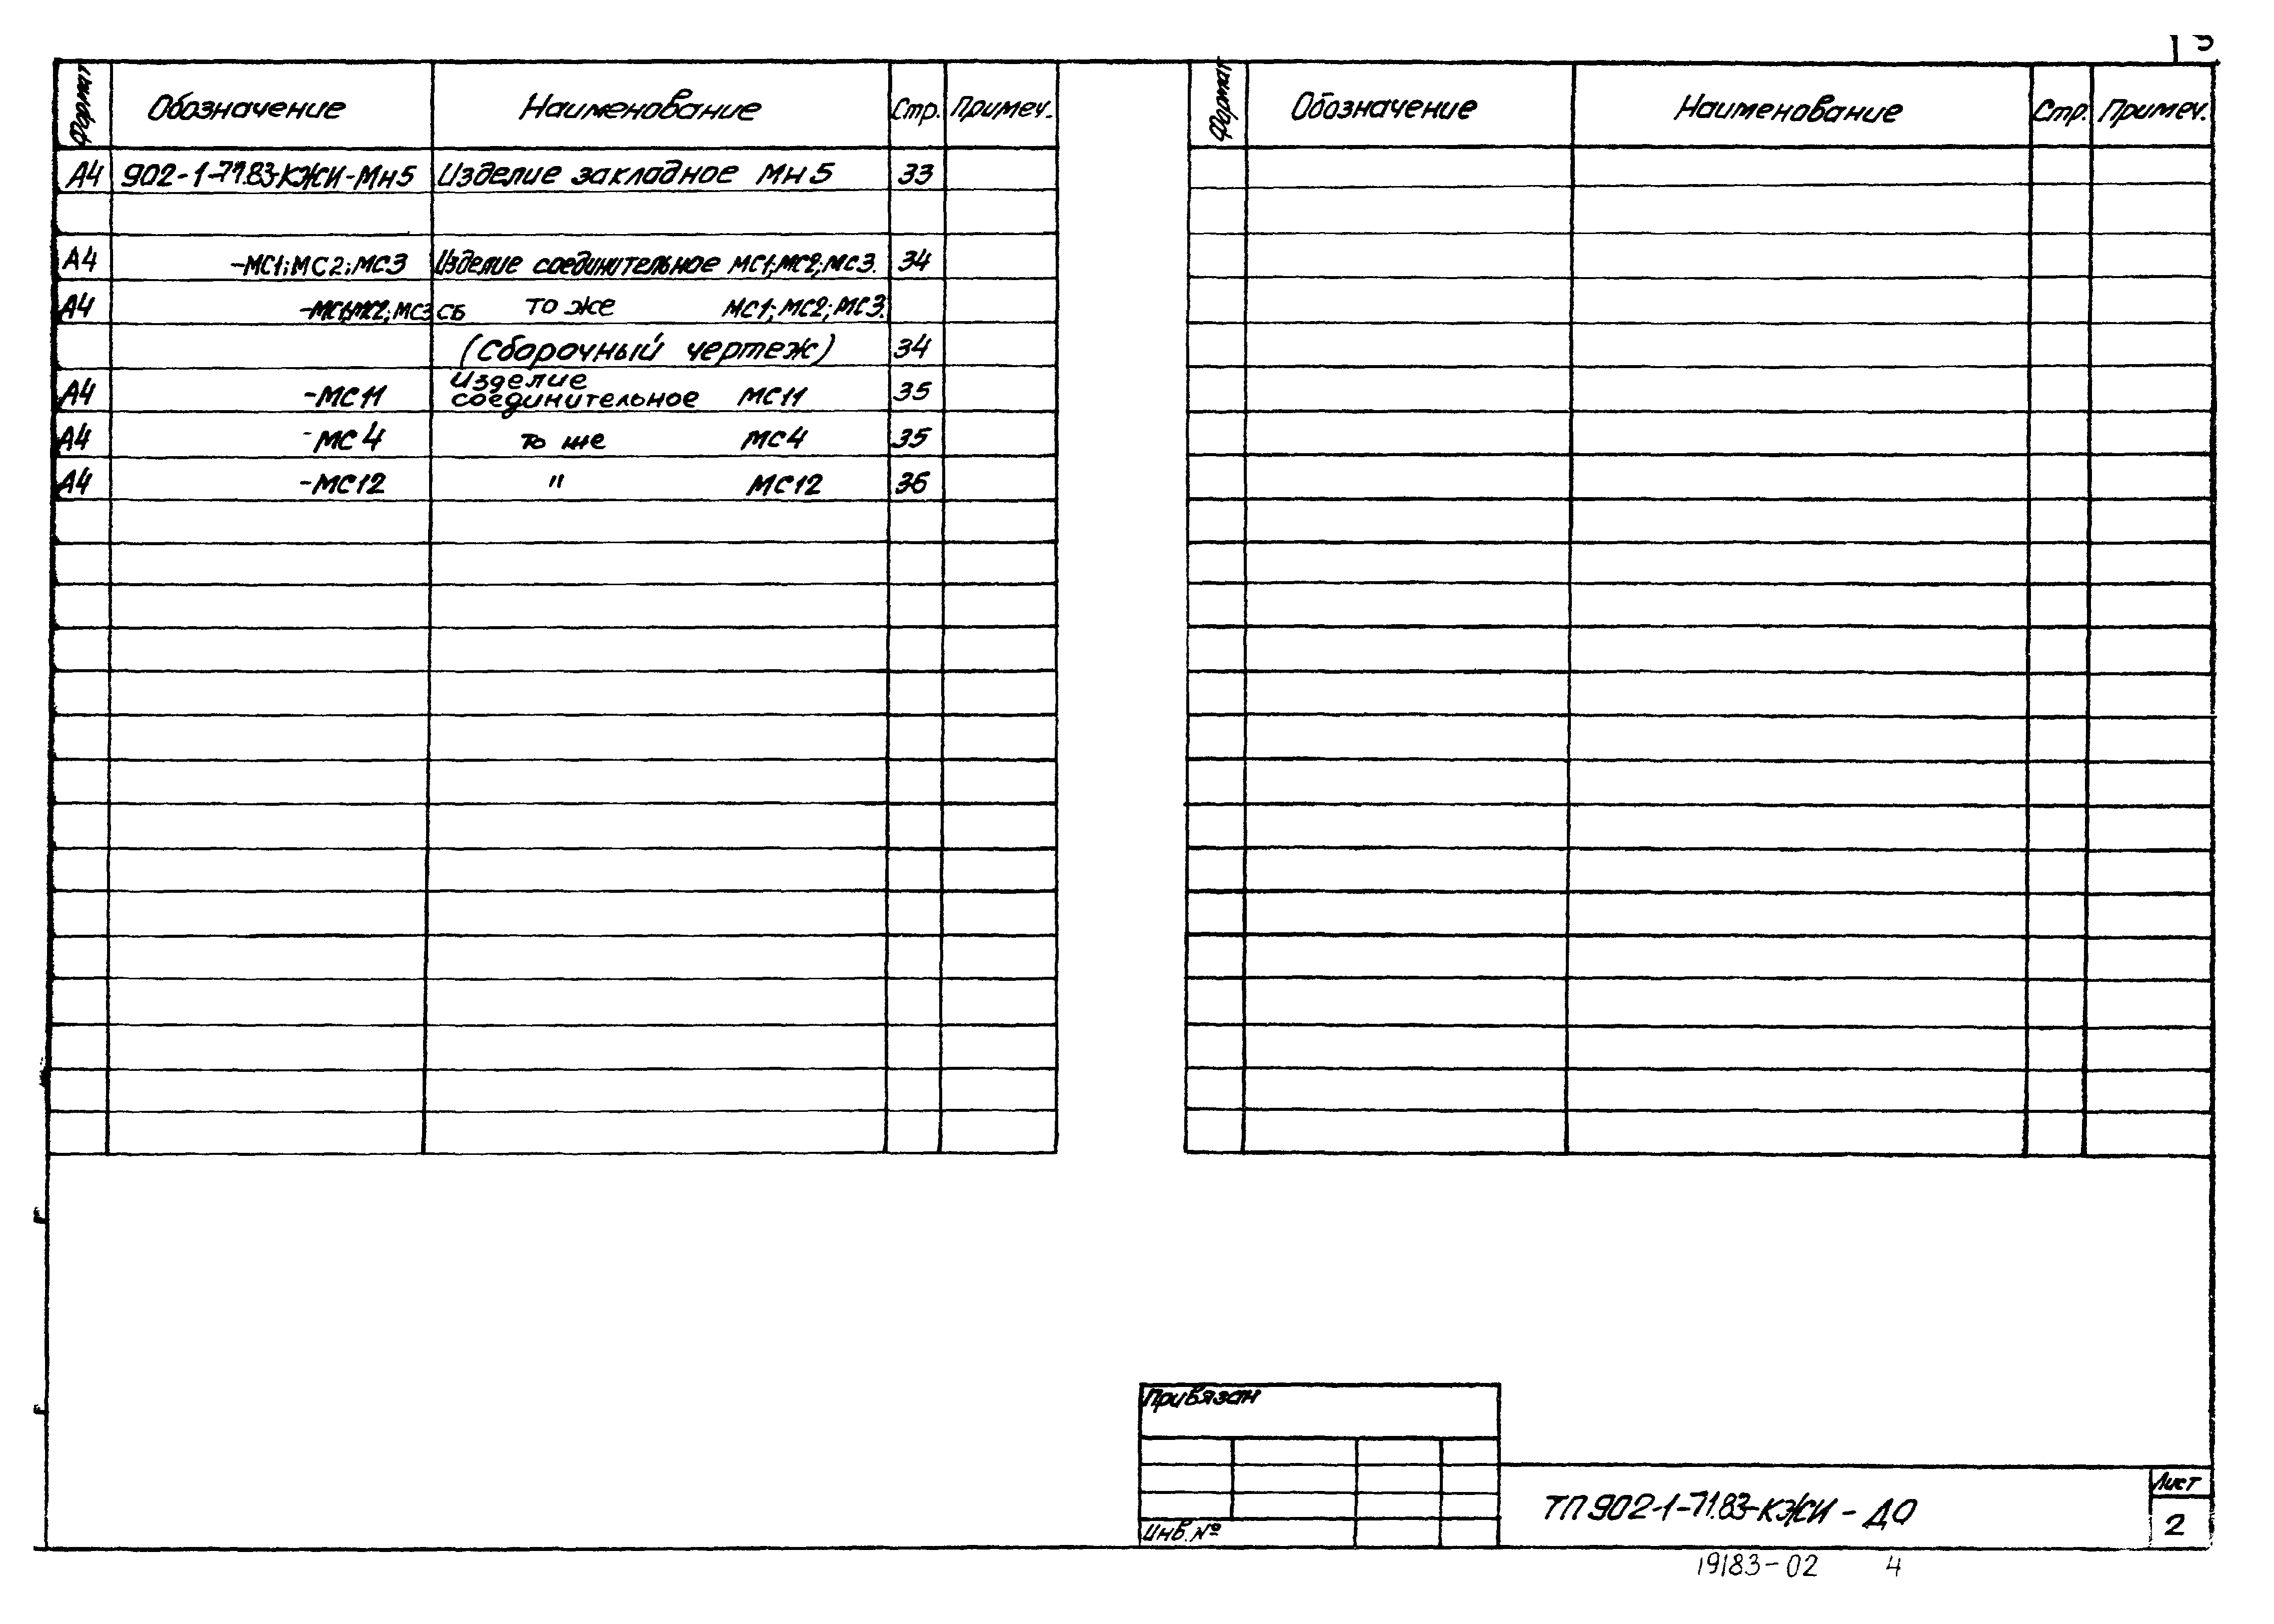 3
Формат Обозначение Наименование Стр. Примеч.
А4 902-1-71.83-КЖИ-Мн5 Изделие закладное Мн5 33
А4 -МС1;МС2;МС3 Изделие соединительное МС1;МС2;МС3. 34
А4 -МС1;МС2;МС3СБ то же МС1;МС2;МС3.
(Сборочный чертеж) 34
А4 -МС11 Изделие
соединительное МС11 35
А4 -МС4 то же МС4 35
А4 -МС12 " МС12 36
Формат Обозначение Наименование Стр. Примеч.
Привязан
Инв.№
ТП 902-1-71.83-КЖИ-ДО
Лист
2
19183-02 4